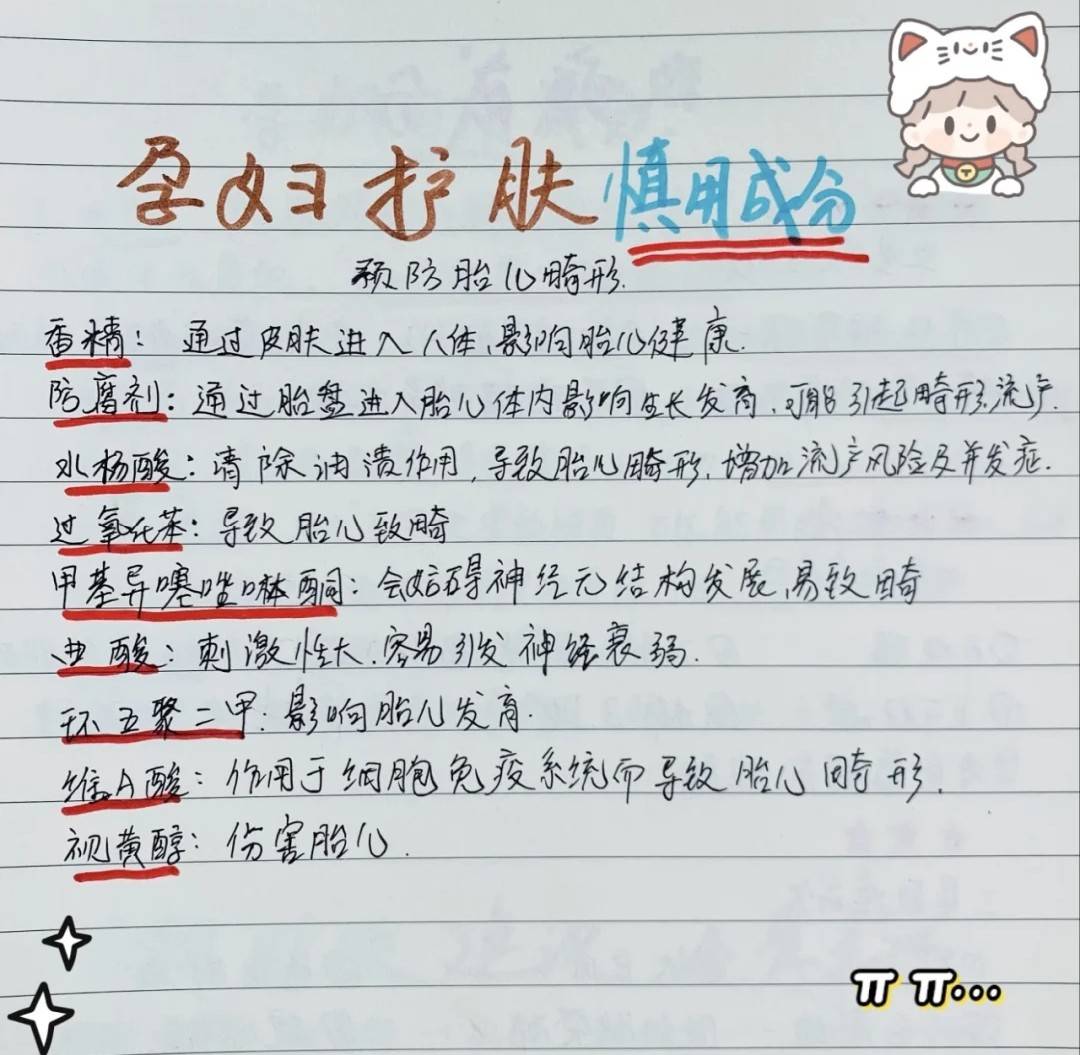 孕妇护肤慎用成分
预防胎儿畸形.
香精：通过皮肤进入人体、影响胎儿健康.
防腐剂：通过胎盘进入胎儿体内影响生长发育、可能引起畸形.流产.
水杨酸：清除油渍作用，导致胎儿畸形，增加流产风险及并发症.
过氧化苯：导致胎儿致畸
甲基异噻唑啉酮：会妨碍神经元结构发展，易致畸
曲酸：刺激性大.容易引发神经衰弱.
环五聚二甲：影响胎儿发育.
维A酸：作用于细胞免疫系统而导致胎儿畸形.
视黄醇：伤害胎儿.
ππ...